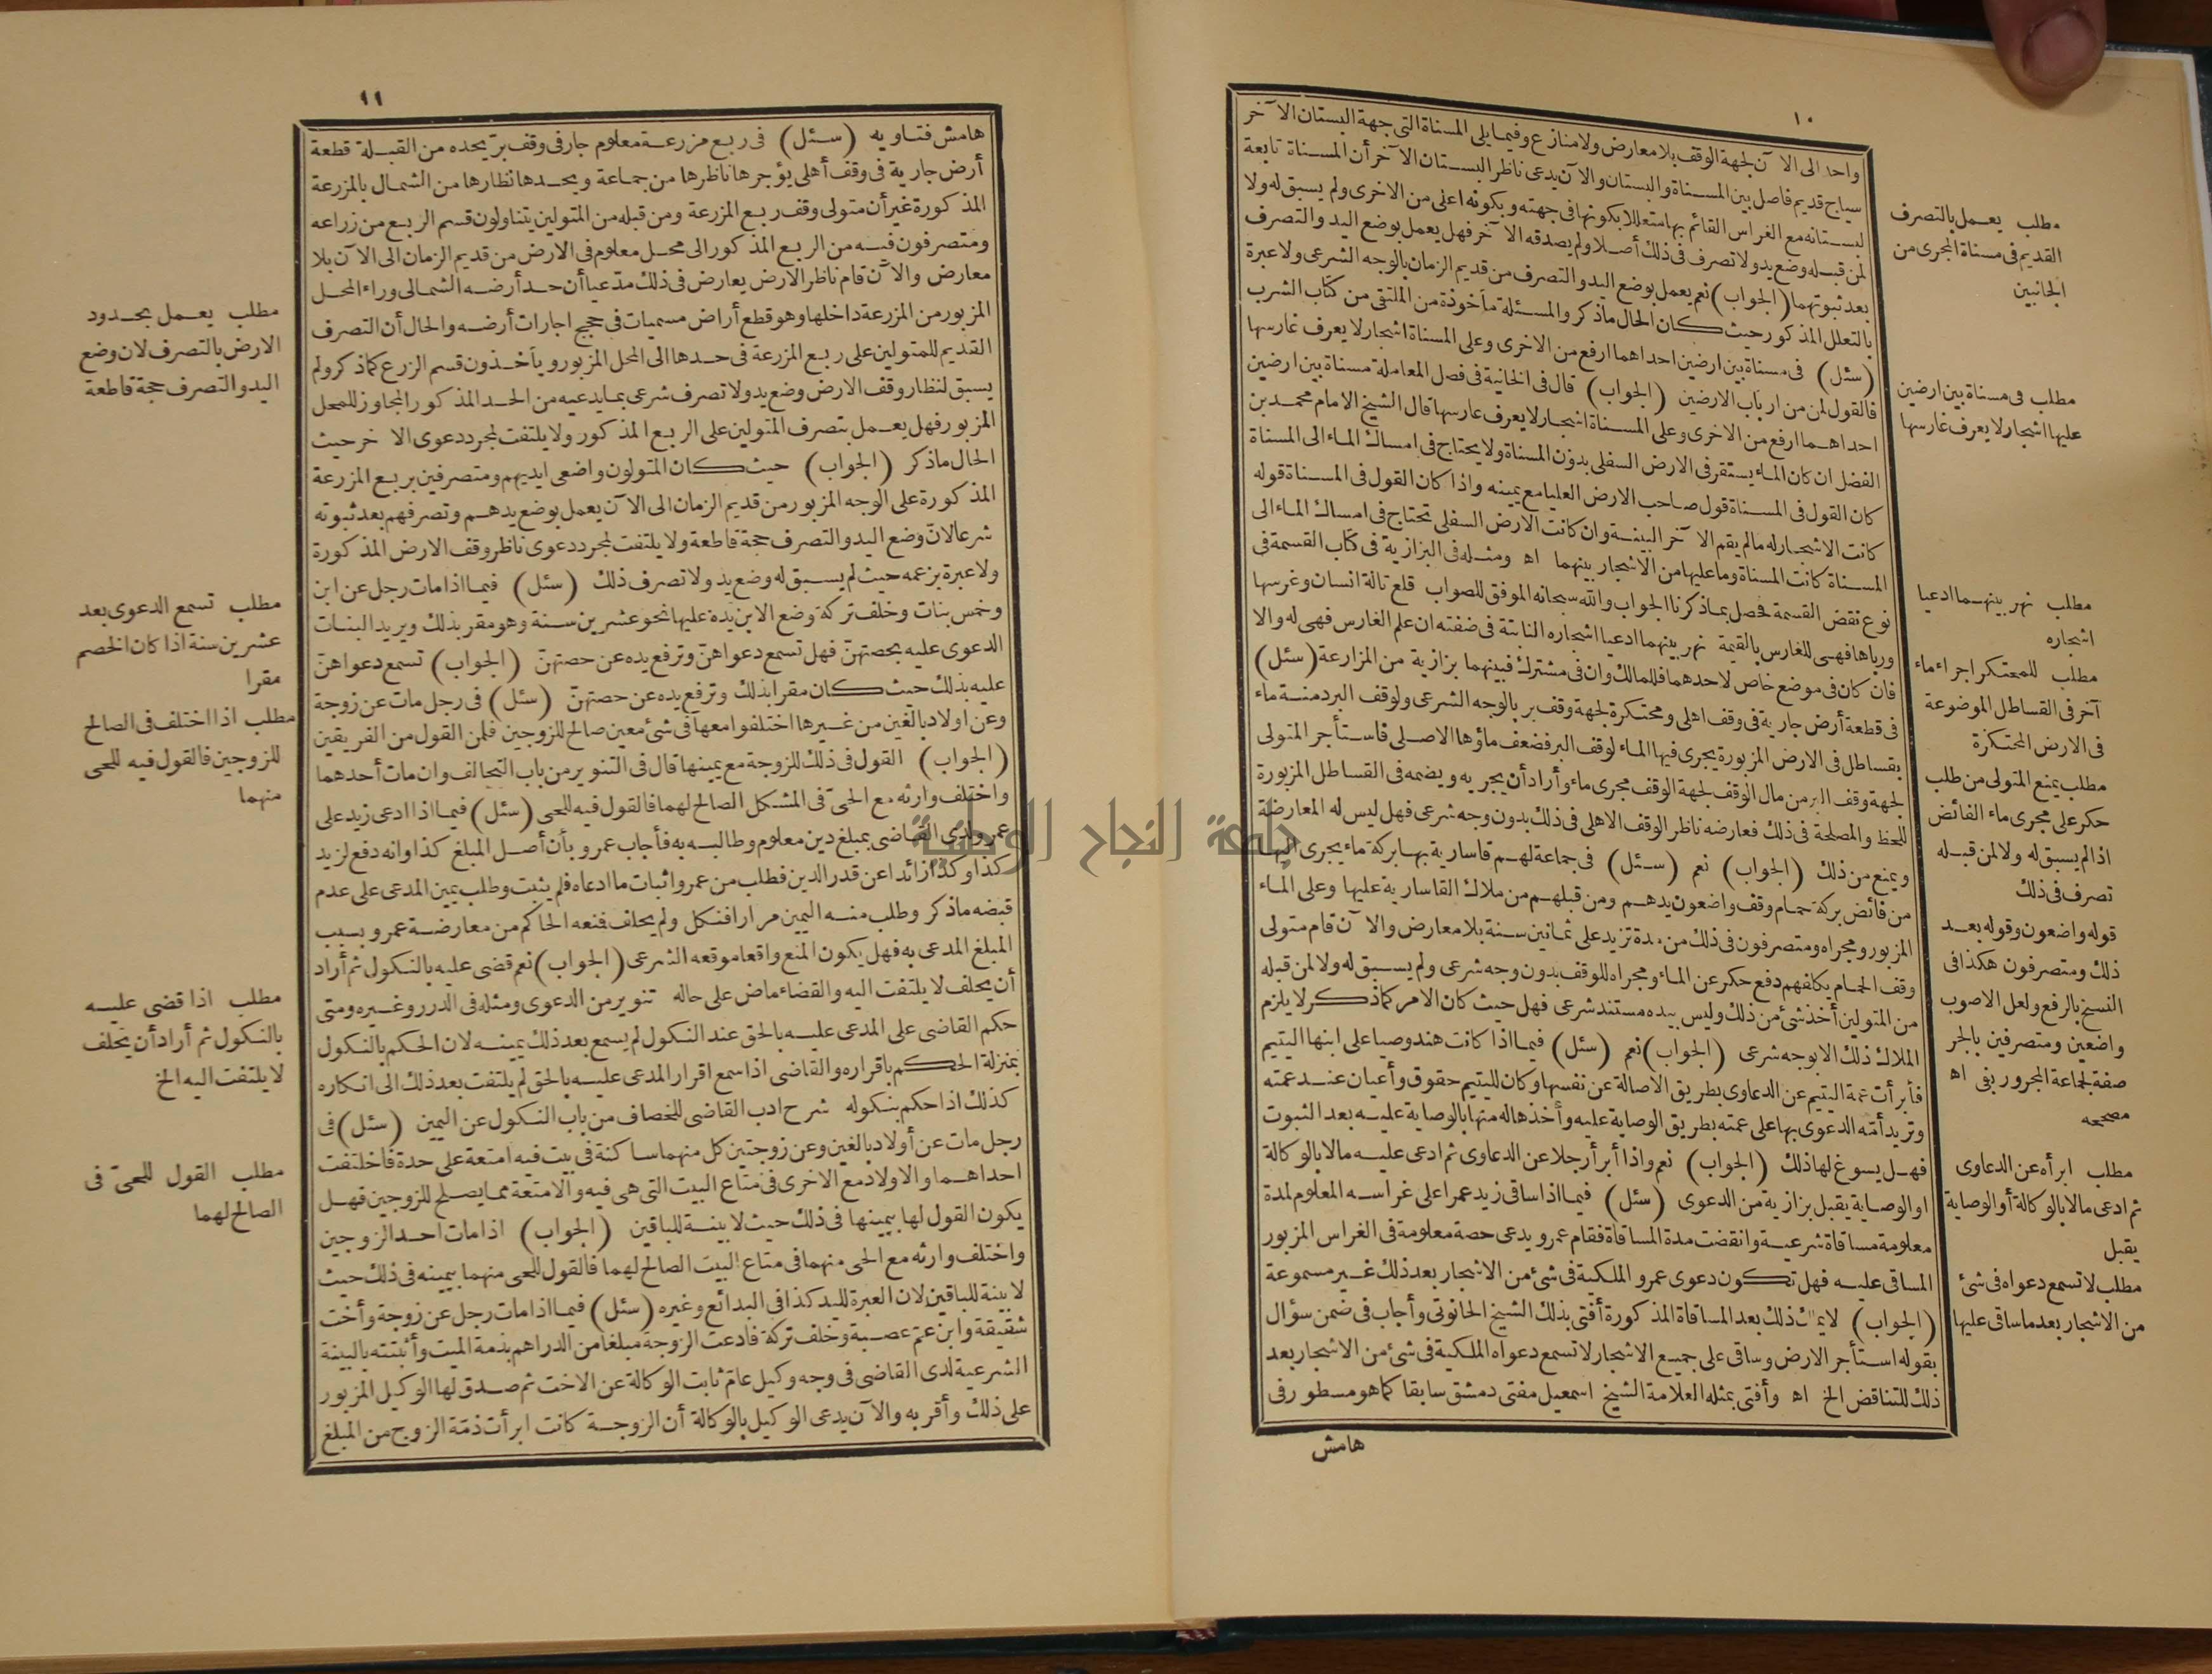 ١٠
واحد الى الآن لجهة الوقف بلا معارض ولا منازع وفيما يلى المسناة التى جهة البستان الآخر
سياج قديم فاصل بين المسناة والبستان والآن يدعى ناظر البستان الآخر أن المسناة تابعة
لبستانه مع الغراس القائم بها متعللا بكونها فى جهته وبكونه اعلى من الاخرى ولم يسبق له ولا
لمن قبله وضع يد ولا تصرف فى ذلك أصلا ولم يصدقه الآخر فهل يعمل بوضع اليد والتصرف
بعد ثبوتهما (الجواب) نعم يعمل بوضع اليد والتصرف من قديم الزمان بالوجه الشرعى ولا عبرة
بالتعلل المذكور حيث كان الحال ما ذكر والمسئلة مأخوذة من الملتقى من كتاب الشرب
(سئل) فى مسناة بين ارضين احداهما ارفع من الاخرى وعلى المسناة اشجار لا يعرف غارسها
فالقول لمن من ارباب الارضين (الجواب) قال فى الخانية فى فصل المعاملة مسناة بين ارضين
احداهما ارفع من الاخرى وعلى المسناة اشجار لا يعرف غارسها قال الشيخ الامام محمد بن
الفضل ان كان الماء يستقر فى الارض السفلى بدون المسناة ولا يحتاج فى امساك الماء الى المسناة
كان القول فى المسناة قول صاحب الارض العليا مع يمينه واذا كان القول فى المسناة قوله
كانت الاشجار له ما لم يقم الآخر البينة وان كانت الارض السفلى تحتاج فى امساك الماء الى
المسناة كانت المسناة وما عليها من الاشجار بينهما اه ومثله فى البزازية فى كتاب القسمة فى
نوع نقض القسمة فحصل بما ذكرنا الجواب والله سبحانه الموفق للصواب قلع تالة انسان وغرسها
ورباها فهى للغارس بالقيمة نهر بينهما ادعيا اشجاره النابتة فى ضفته ان علم الغارس فهى له والا
فان كان فى موضع خاص لاحدهما فللمالك وان فى مشترك فبينهما بزازية من المزارعة (سئل)
فى قطعة أرض جارية فى وقف اهلى ومحتكرة لجهة وقف بر بالوجه الشرعى ولوقف البر دمنة ماء
بقساطل فى الارض المزبورة يجرى فيها الماء لوقف البر فضعف ماؤها الاصلى فاستأجر المتولى
لجهة وقف البر من مال الوقف لجهة الوقف مجرى ماء وأراد أن يجريه ويضمه فى القساطل المزبورة
للحظ والمصلحة فى ذلك فعارضه ناظر الوقف الاهلى فى ذلك بدون وجه شرعى فهل ليس له المعارضة
ويمنع من ذلك (الجواب) نعم (سئل) فى جماعة لهم قاسارية بها بركة ماء يجرى اليها
من فائض بركة حمام وقف واضعون يدهم ومن قبلهم من ملاك القاسارية عليها وعلى الماء
المزبور ومجراه ومتصرفون فى ذلك من مدة تزيد على ثمانين سنة بلا معارض والآن قام متولى
وقف الحمام يكلفهم دفع حكر عن الماء ومجراه للوقف بدون وجه شرعى ولم يسبق له ولا لمن قبله
من المتولين أخذ شئ من ذلك وليس بيده مستند شرعى فهل حيث كان الامر كما ذكر لا يلزم
الملاك ذلك الا بوجه شرعى (الجواب) نعم (سئل) فيما اذا كانت هند وصيا على ابنها اليتيم
فأبرأت عمة اليتيم عن الدعاوى بطريق الاصالة عن نفسها وكان لليتيم حقوق وأعيان عند عمته
وتريد أمّه الدعوى بها على عمته بطريق الوصاية عليه وأخذها له منها بالوصاية عليه بعد الثبوت
فهل يسوغ لها ذلك (الجواب) نعم واذا أبرأ رجلا عن الدعاوى ثم ادعى عليه مالا بالوكالة
او الوصاية يقبل بزازية من الدعوى (سئل) فيما اذا ساقى زيد عمرا على غراسه المعلوم لمدة
معلومة مساقاة شرعية وانقضت مدة المساقاة فقام عمرو يدعى حصة معلومة فى الغراس المزبور
المساقى عليه فهل تكون دعوى عمرو الملكية فى شئ من الاشجار بعد ذلك غير مسموعة
(الجواب) ذلك بعد المساقاة المذكورة أفتى بذلك الشيخ الحانوتى وأجاب فى ضمن سؤال
بقوله استأجر الارض وساقى على جميع الاشجار لا تسمع دعواه الملكية فى شئ من الاشجار بعد
ذلك للتناقض الخ اه وأفتى بمثله العلامة الشيخ اسمعيل مفتى دمشق سابقا كما هو مسطور فى
هامش
مطلب يعمل بالتصرف
القديم فى مسناة المجرى من
الجانبين
مطلب فى مسناة بين ارضين
عليها اشجار لا يعرف غارسها
مطلب نهر بينهما ادعيا
اشجاره
مطلب للمحتكر اجراء ماء
آخر فى القساطل الموضوعة
فى الارض المحتكرة
مطلب يمنع المتولى من طلب
حكر على مجرى ماء الفائض
اذا لم يسبق له ولا لمن قبله
تصرف فى ذلك
قوله واضعون وقوله بعد
ذلك ومتصرفون هكذا فى
النسخ بالرفع ولعل الاصوب
واضعين ومتصرفين بالجر
صفة لجماعة المجرور بفى اه
مصححه
مطلب ابرأه عن الدعاوى
ثم ادعى مالا بالوكالة أو الوصاية
يقبل
مطلب لا تسمع دعواه فى شئ
من الاشجار بعد ما ساقى عليها
١١
هامش فتاويه (سئل) فى ربع مزرعة معلوم جار فى وقف برّ يحده من القبلة قطعة
أرض جارية فى وقف أهلى يؤجرها ناظرها من جماعة ويحدها نظارها من الشمال بالمزرعة
المذكورة غير أن متولى وقف ربع المزرعة ومن قبله من المتولين يتناولون قسم الربع من زراعه
ومتصرفون فيه من الربع المذكور الى محل معلوم فى الارض من قديم الزمان الى الآن بلا
معارض والآن قام ناظر الارض يعارض فى ذلك مدّعيا أن حد أرضه الشمالى وراء المحل
المزبور من المزرعة داخلها وهو قطع أراض مسميات فى حجج اجارات أرضه والحال أن التصرف
القديم للمتولين على ربع المزرعة فى حدها الى المحل المزبور ويأخذون قسم الزرع كما ذكر ولم
يسبق لنظار وقف الارض وضع يد ولا تصرف شرعى بما يدعيه من الحد المذكور المجاوز للمحل
المزبور فهل يعمل بتصرف المتولين على الربع المذكور ولا يلتفت لمجرد دعوى الآخر حيث
الحال ما ذكر (الجواب) حيث كان المتولون واضعى ايديهم ومتصرفين بربع المزرعة
المذكورة على الوجه المزبور من قديم الزمان الى الآن يعمل بوضع يدهم وتصرفهم بعد ثبوته
شرعا لانّ وضع اليد والتصرف حجة قاطعة ولا يلتفت لمجرد دعوى ناظر وقف الارض المذكورة
ولا عبرة بزعمه حيث لم يسبق له وضع يد ولا تصرف ذلك (سئل) فيما اذا مات رجل عن ابن
وخمس بنات وخلف تركة وضع الابن يده عليها نحو عشرين سنة وهو مقر بذلك ويريد البنات
الدعوى عليه بحصتهنّ فهل تسمع دعواهنّ وترفع يده عن حصتهنّ (الجواب) تسمع دعواهنّ
عليه بذلك حيث كان مقرا بذلك وترفع يده عن حصتهنّ (سئل) فى رجل مات عن زوجة
وعن اولاد بالغين من غيرها اختلفوا معها فى شئ معين صالح للزوجين فلمن القول من الفريقين
(الجواب) القول فى ذلك للزوجة مع يمينها قال فى التنوير من باب التحالف وان مات أحدهما
واختلف وارثه مع الحىّ فى المشكل الصالح لهما فالقول فيه للحى (سئل) فيما اذا ادعى زيد على
عمرو لدى القاضى بمبلغ دين معلوم وطالبه به فأجاب عمرو بأن أصل المبلغ كذا وانه دفع لزيد
كذا وكذا زائدا عن قدر الدين فطلب من عمرو اثبات ما ادعاه فلم يثبت وطلب يمين المدعى على عدم
قبضه ما ذكر وطلب منه اليمين مرارا فنكل ولم يحلف فمنعه الحاكم من معارضة عمرو بسبب
المبلغ المدعى به فهل يكون المنع واقعا موقعه الشرعى (الجواب) نعم قضى عليه بالنكول ثم أراد
أن يحلف لا يلتفت اليه والقضاء ماض على حاله تنوير من الدعوى ومثله فى الدرر وغيره ومتى
حكم القاضى على المدعى عليه بالحق عند النكول لم يسمع بعد ذلك يمينه لان الحكم بالنكول
بمنزلة الحكم باقراره والقاضى اذا سمع اقرار المدعى عليه بالحق لم يلتفت بعد ذلك الى انكاره
كذلك اذا حكم بنكوله شرح ادب القاضى للخصاف من باب النكول عن اليمين (سئل) فى
رجل مات عن أولاد بالغين وعن زوجتين كل منهما ساكنة فى بيت فيه امتعة على حدة فاختلفت
احداهما والاولاد مع الاخرى فى متاع البيت التى هى فيه والامتعة مما يصلح للزوجين فهل
يكون القول لها بيمينها فى ذلك حيث لا بينة للباقين (الجواب) اذا مات احد الزوجين
واختلف وارثه مع الحى منهما فى متاع البيت الصالح لهما فالقول للحى منهما بيمينه فى ذلك حيث
لا بينة للباقين لان العبرة لليد كذا فى البدائع وغيره (سئل) فيما اذا مات رجل عن زوجة وأخت
شقيقة وابن عمّ عصبة وخلف تركة فادعت الزوجة مبلغا من الدراهم بذمة الميت وأثبتته بالبينة
الشرعية لدى القاضى فى وجه وكيل عامّ ثابت الوكالة عن الاخت ثم صدق لها الوكيل المزبور
على ذلك وأقر به والآن يدعى الوكيل بالوكالة أن الزوجة كانت ابرأت ذمّة الزوج من المبلغ
مطلب يعمل بحدود
الارض بالتصرف لان وضع
اليد والتصرف حجة قاطعة
مطلب تسمع الدعوى بعد
عشرين سنة اذا كان الخصم
مقرا
مطلب اذا اختلف فى الصالح
للزوجين فالقول فيه للحى
منهما
مطلب اذا قضى عليه
بالنكول ثم أراد أن يحلف
لا يلتفت اليه الخ
مطلب القول للحىّ فى
الصالح لهما
جامعة النجاح الوطنية